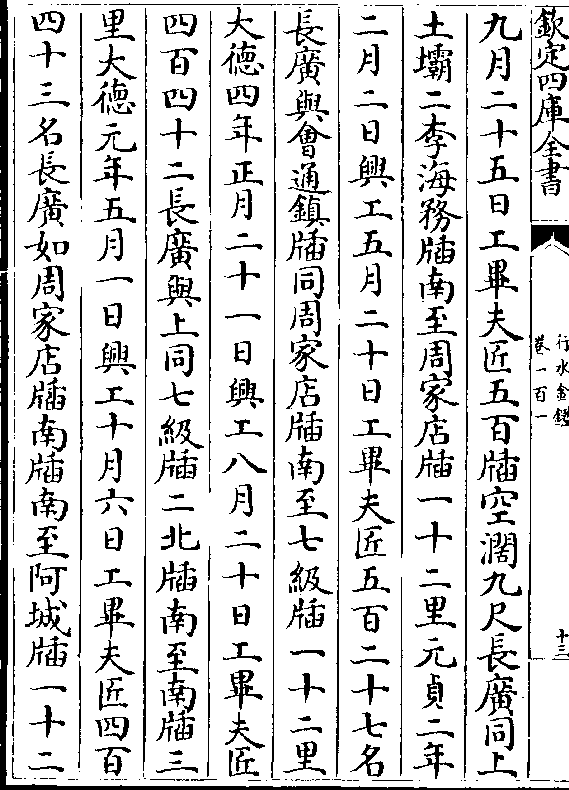 欽定四庫全書
行水金鑑
卷一百一
十三
九月二十五日工畢夫匠五百牐空濶九尺長廣同上
土壩二李海務牐南至周家店牐一十二里元貞二年
二月二日興工五月二十日工畢夫匠五百二十七名
長廣與會通鎮牐同周家店牐南至七級牐一十二里
大德四年正月二十一日興工八月二十日工畢夫匠
四百四十二長廣與上同七級牐二北牐南至南牐三
里大德元年五月一日興工十月六日工畢夫匠四百
四十三名長廣如周家店牐南牐南至阿城牐一十二